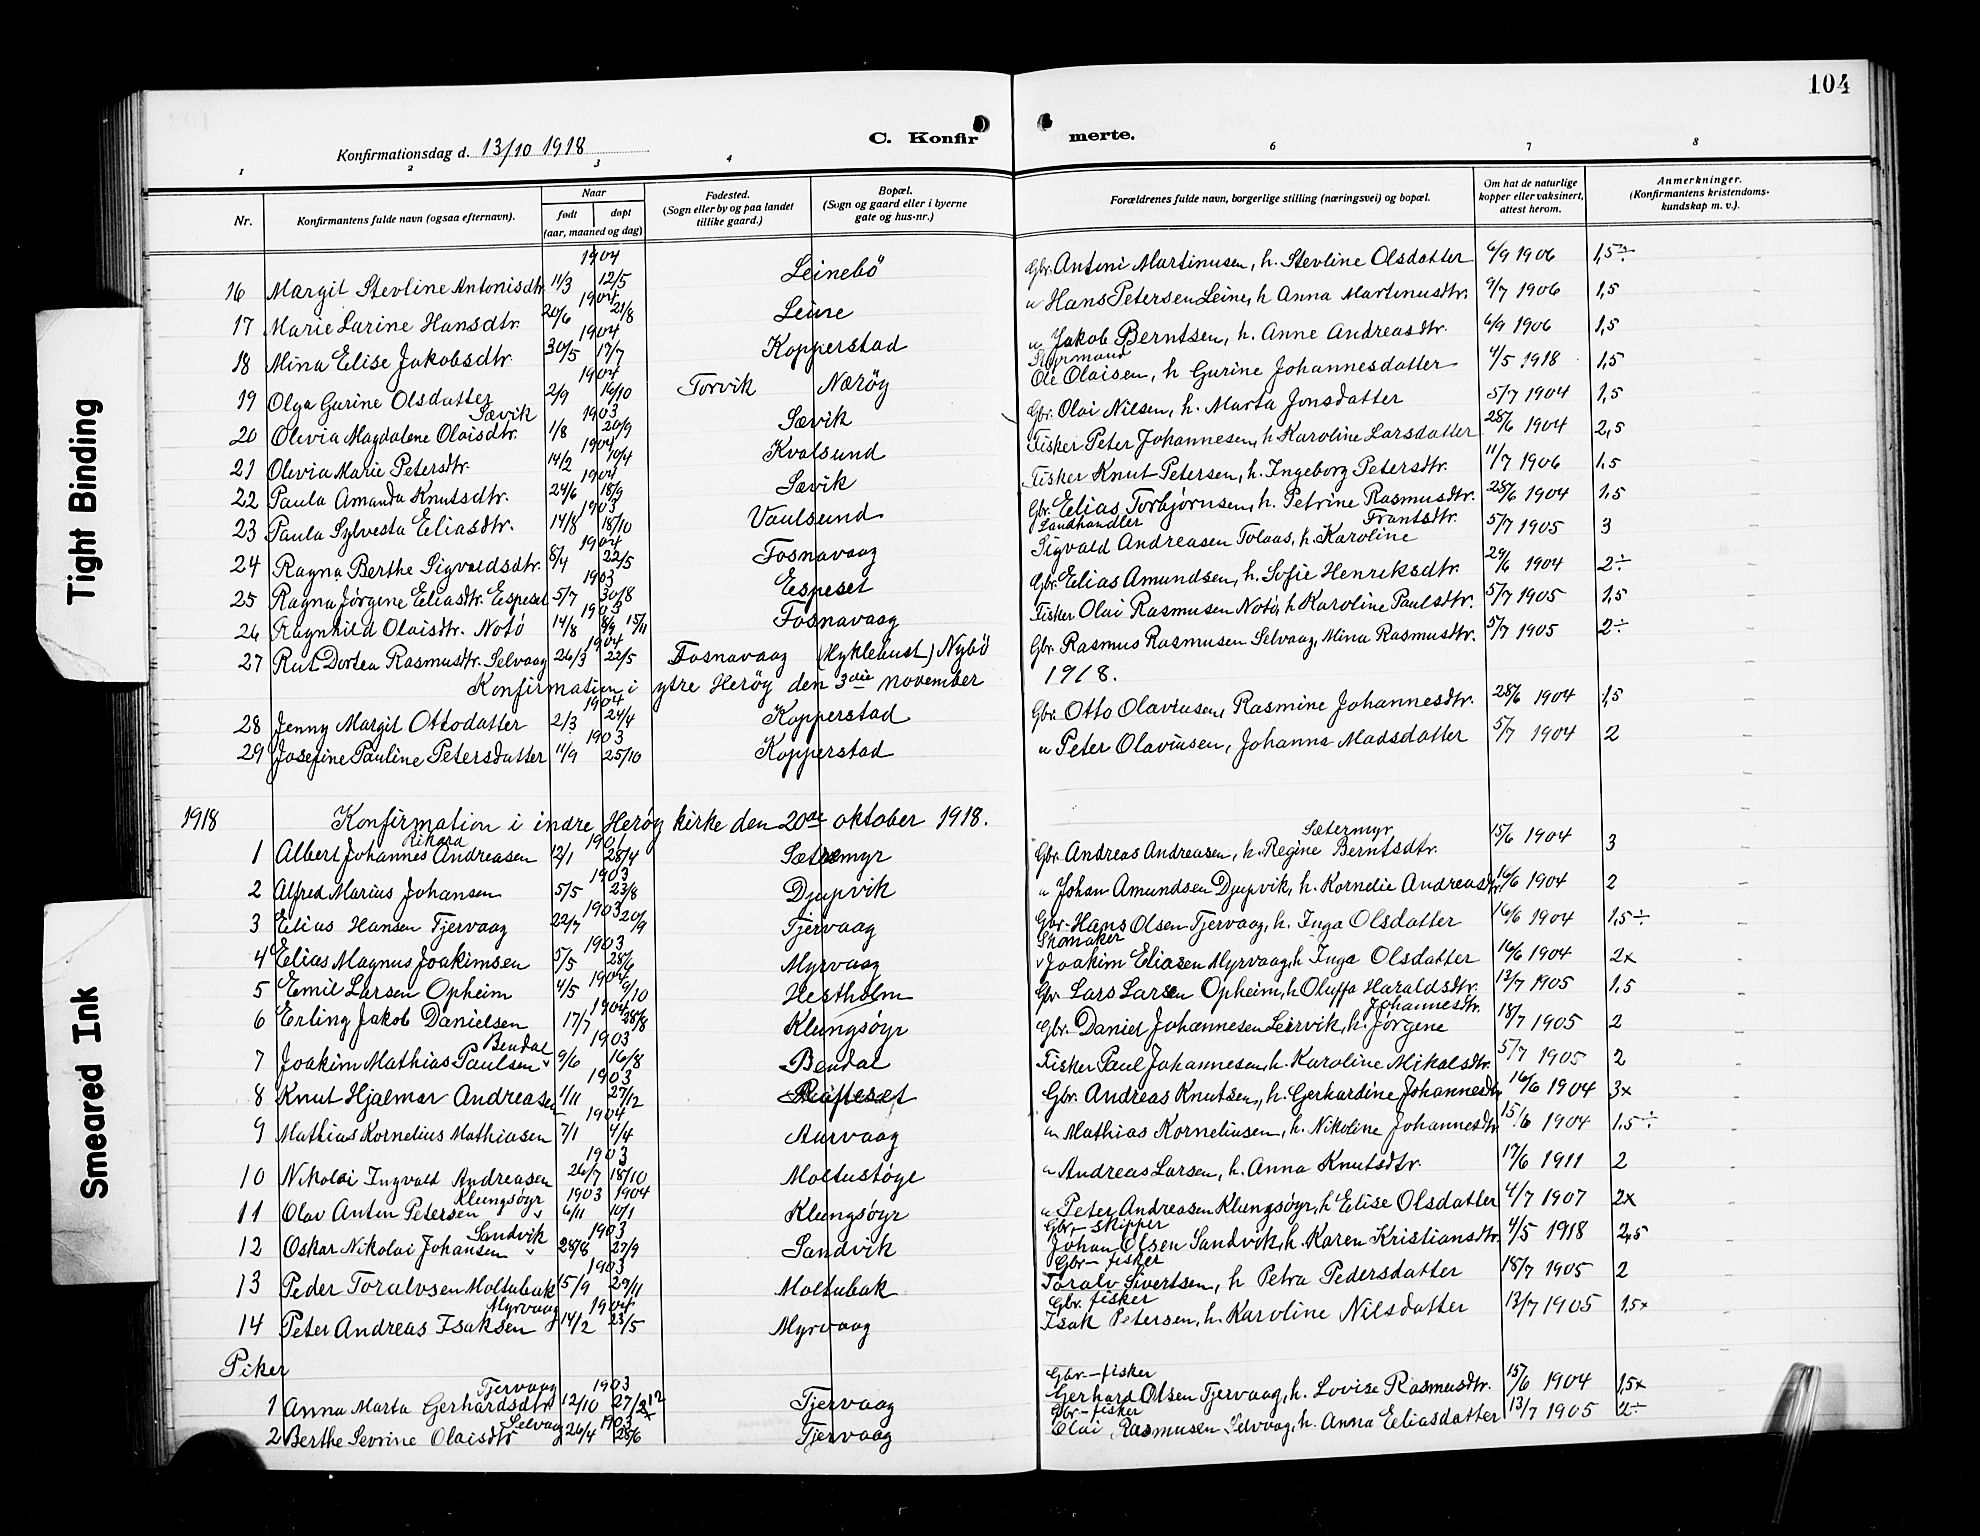 104
Konfirmationsdag d. 13/10 1918
C. Konfirmerte.
1 2 3 4 6 7 8
Nr. Konfirmantens fulde navn (ogsaa efternavn). Naar født døpt (aar, maaned og dag) Fødested. (Sogn eller by og paa landet tillike gaard.) Bopæl. (Sogn og gaard eller i byerne gate og hus-nr.) Forældrenes fulde navn, borgerlige stilling (næringsvei) og bopæl. Om hat de naturlige kopper eller vaksinert, attest herom. Anmerkninger. (Konfirmantens kristendoms-kundskap m. v.).
16 Margit Stevline Antonisdtr. 11/3 1904 12/5 Leinebö Gbr. Antoni Martinusen, h. Stevline Olsdatter 6/9 1906 1,5÷
17 Marie Larine Hansdtr. 20/6 1904 21/8 Leine " Hans Petersen Leine, h Anna Martinusdtr. 9/7 1906 1,5
18 Mina Elise Jakobsdtr. 30/5 1904 17/7 Kopperstad " Jakob Berntsen, h. Anne Andreasdtr. 6/9 1906 1,5
19 Olga Gurine Olsdatter 2/9 1904 16/10 Torvik Nærøy Styrmand Ole Olaisen, h Gurine Johannesdatter 4/5 1918 1,5
20 Olevia Magdalene Olaisdtr. Sævik 1/8 1903 20/9 Sævik Gbr. Olai Nilsen, h. Marta Jonsdatter 5/7 1904 1,5
21 Olevia Marie Petersdtr. 14/2 1904 10/4 Kvalsund Fisker Peter Johannesen, h Karoline Larsdatter 28/6 1904 2,5
22 Paula Amanda Knutsdtr. 24/6 1904 18/9 Sævik Fisker Knut Petersen, h. Ingeborg Petersdtr. 11/7 1906 1,5
23 Paula Sylvesta Eliasdtr. 14/8 1903 18/10 Vaulsund Gbr. Elias Torbjørnsen, h. Petrine Rasmusdtr. 28/6 1904 1,5
24 Ragna Berthe Sigvaldsdtr. 8/4 1904 22/5 Fosnavaag Landhandler Sigvald Andreasen Tolaas, h. Karoline Frantsdtr. 5/7 1905 3
25 Ragna Jørgene Eliasdtr. Espeset 5/7 1903 30/8 Espeset Gbr. Elias Amundsen, h. Sofie Henriksdtr. 29/6 1904 2÷
26 Ragnhild Olaisdtr. Notö 14/8 1903 8/9 15/11 Fosnavaag Fisker Olai Rasmusen Notö, h Karoline Paulsdtr. 5/7 1905 1,5
27 Rut Dortea Rasmusdtr. Selvaag 26/3 1904 22/5 Fosnavaag (Myklebust) Nybö Gbr. Rasmus Rasmusen Selvaag, Mina Rasmusdtr. 5/7 1905 2÷
Konfirmation i ytre Herøy den 3die november 1918.
28 Jenny Margit Ottodatter 2/3 1904 24/4 Kopperstad Gbr. Otto Olavinsen, Rasmine Johannesdtr. 28/6 1904 1,5
29 Josefine Pauline Petersdatter 11/9 1903 25/10 Kopperstad " Peter Olavinsen, Johanna Madsdatter 5/7 1904 2
1918 Konfirmation i indre Herøy kirke den 20de oktober 1918.
1 Albert Johannes Rikard Andreasen 12/1 28/4 Sætremyr Gbr. Andreas Andreasen, h. Regine Berntsdtr. Sætermyr 15/6 1904 3
2 Alfred Marius Johansen 5/5 1903 23/8 Djupvik " Johan Amundsen Djupvik, h. Kornelie Andreasdtr. 16/6 1904 2
3 Elias Hansen Tjervaag 22/7 1903 20/9 Tjervaag Gbr. Hans Olsen Tjervaag, h. Inga Olsdatter 16/6 1904 1,5÷
4 Elias Magnus Joakimsen 5/5 1903 28/6 Myrvaag Skomaker Joakim Eliasen Myrvaag, h Inga Olsdatter 16/6 1904 2x
5 Emil Larsen Opheim 4/5 1904 9/10 Hestholm Gbr Lars Larsen Opheim, h Oluffa Haraldsdtr. 13/7 1905 1.5
6 Erling Jakob Danielsen 17/7 1904 28/8 Klungsöyr Gbr. Daniel Johannesen Leirvik, h. Jørgene Johannesdtr. 18/7 1905 2
7 Joakim Mathias Paulsen Bendal 9/6 1903 16/8 Bendal Fisker Paul Johannesen, h. Karoline Mikalsdtr. 5/7 1905 2
8 Knut Hjalmar Andreasen 1/11 1903 27/12 Gbr. Andreas Knutsen, h. Gerhardine Johannesdtr 16/6 1904 3x
9 Mathias Kornelius Mathiasen 7/1 1904 4/4 Aurvaag " Mathias Korneliusen, h. Nikoline Johannesdtr 15/6 1904 1.5÷
10 Nikolai Ingvald Andreasen 26/7 1903 18/10 Moltustøyl " Andreas Larsen, h. Anna Knutsdtr. 17/6 1911 2
11 Olav Antin Petersen Klungsöyr 1903 6/11 1904 10/1 Klungsøyr " Peter Andreasen Klungsøyr, h Elise Olsdatter 4/7 1907 2x
12 Oskar Nikolai Johansen Sandvik 28/8 1903 27/9 Sandvik Gbr.- skipper Johan Olsen Sandvik, h. Karen Kristiansdtr. 4/5 1918 2,5
13 Peder Toralvsen Moltubak 15/9 1903 29/11 Moltubak Gbr- fisker Toralv Sivertsen, h Petra Pedersdatter 18/7 1905 2
14 Peter Andreas Isaksen Myrvaag 14/2 1904 23/5 Myrvaag Gbr. fisker Isak Petersen, h. Karoline Nilsdatter 13/7 1905 1,5x
Piker
1 Anna Marta Gerhardsdtr. Tjervaag 12/10 1903 27/12 Tjervaag Gbr-fisker Gerhard Olsen Tjervaag, h. Lovise Rasmusdtr. 15/6 1904 1,5x
2 Berthe Sevrine Olaisdtr Selvaag 26/4 1903 28/6 Tjervaag Gbr-fisker Olai Rasmusen Selvaag, h. Anna Eliasdatter 13/7 1905 2÷
Tight Binding
Smeared Ink